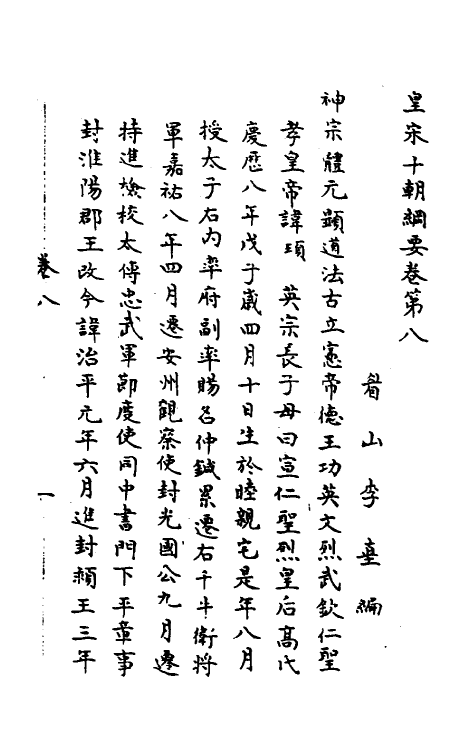 皇宋十朝綱要卷第八
眉山李𡌴編
神宗體元顯道法古立憲帝德王功英文烈武欽仁聖
孝皇帝諱頊 英宗長子母曰宣仁聖烈皇后高氏
慶歷八年戊子歲四月十日生於睦親宅是年八月
授太子右內率府副率賜名仲鍼累遷右千牛衛將
軍嘉祐八年四月遷安州觀察使封光國公九月遷
特進檢校太傅忠武軍節度使同中書門下平章事
封淮陽郡王改今諱治平元年六月進封潁王三年
卷八
一